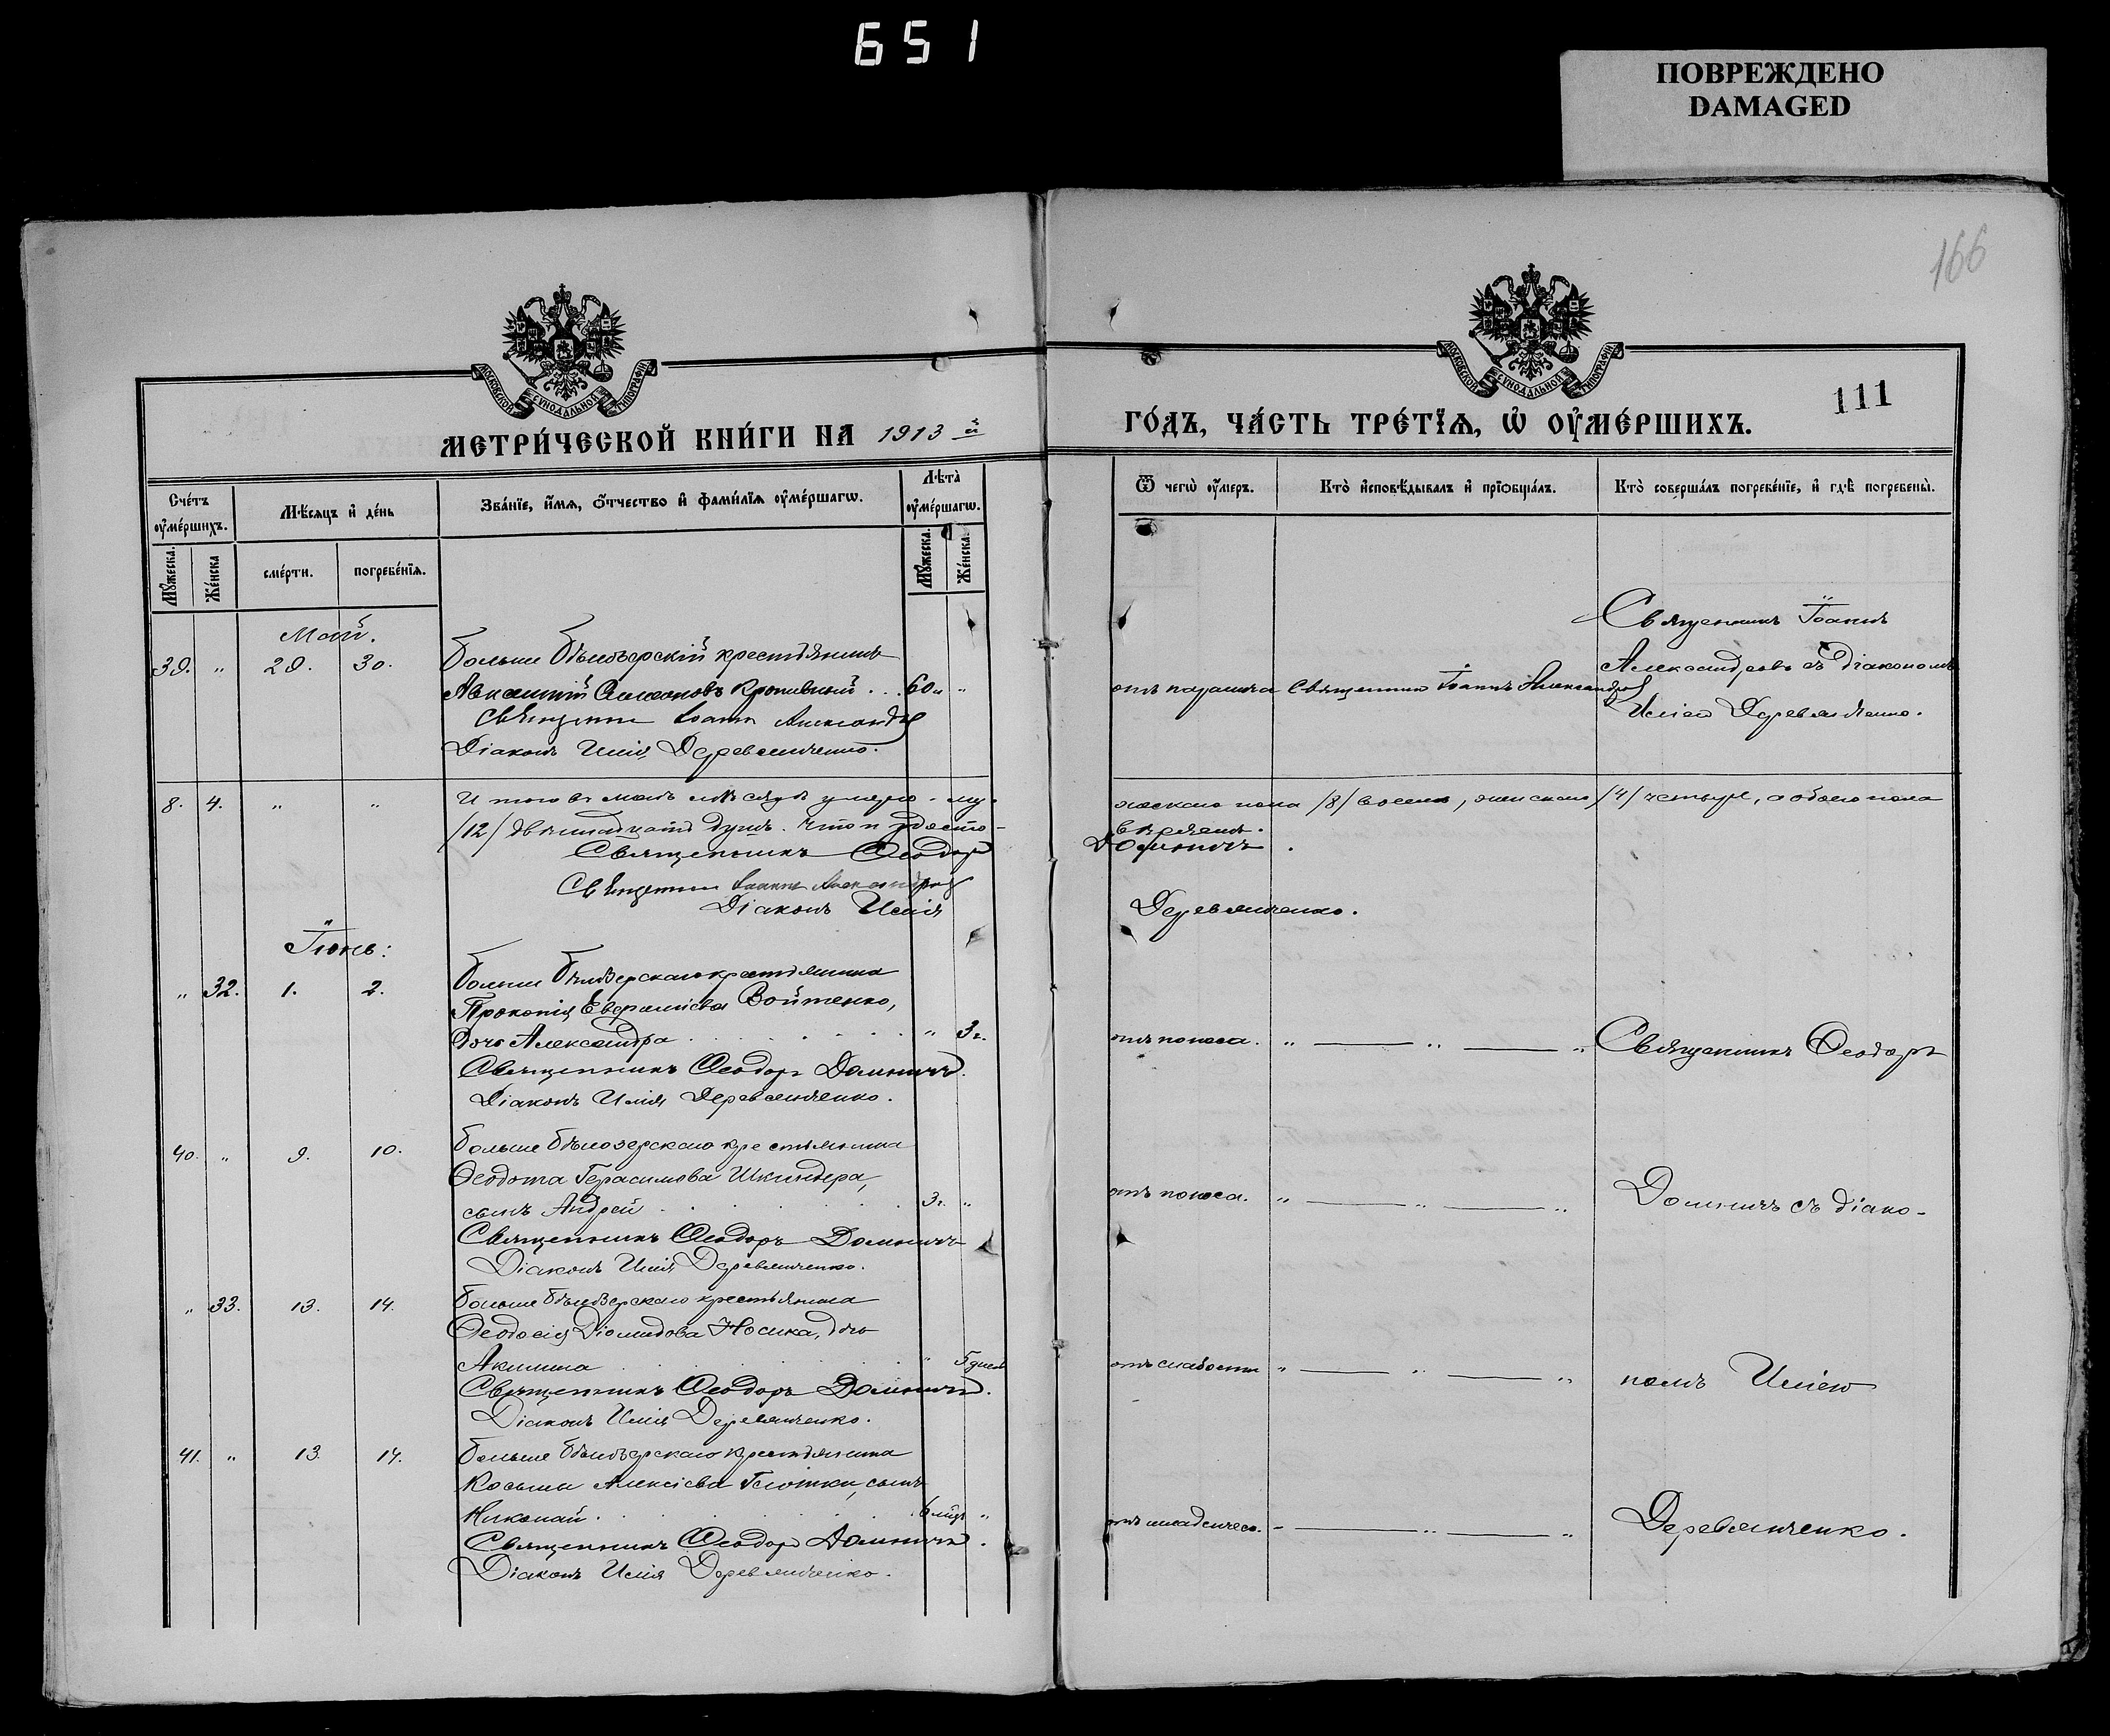 651
ПОВРЕЖДЕНО
DAMAGED
166
МОСКОВСКОЙ СѴНОДАЛЬНОЙ ТИПОГРАФІИ
МОСКОВСКОЙ СѴНОДАЛЬНОЙ ТИПОГРАФІИ
111
МЕТРИ́ЧЕСКОЙ КНИ́ГИ НА 1913 й
ГО́ДЪ, ЧА́СТЬ ТРЕ́ТЇѦ, Ѡ҆ ОУ҆МЕ́РШИХЪ.
Сче́тъ оу҆ме́ршихъ.
Мꙋ́жеска.
Же́нска
Мѣ́сяцъ и҆ де́нь
сме́рти.
погребе́нїѧ.
Зва́нїе, и҆́мѧ, ѻ҆́тчество и҆ фами́лїѧ оу҆ме́ршагѡ.
Лѣ́та оу҆ме́ршагѡ.
Мꙋ́жеска.
Же́нска.
Ѿ чегѡ̀ оу҆́меръ.
Кто̀ и҆сповѣ́дывалъ и҆ прїѡбща́лъ.
Кто̀ соверша́лъ погребе́нїе, и҆ гдѣ̀ погребены̀.
Май.
39. " 29. 30. Больше Бѣлозерскій крестьянинъ
Кропивный . . 60 л "
Священник Іоанн Александров
Діаконъ Илія Деревянченко.
отъ паралича Священник Іоаннъ Александров
Священникъ Іоаннъ
Александровъ съ діакономъ
Иліею Деревянченко.
8. 4. " " Итого въ маѣ мѣсяцѣ умерло му-
жескаго пола /8/ восемь, женскаго /4/ четыре, а обоего пола
/12/ двѣнадцать душъ. Что и удосто-
вѣряемъ.
Священникъ Ѳеодоръ
Домничъ.
Священник Іоаннъ Александров
Діаконъ Илія
Деревянченко.
Іюнь:
" 32. 1. 2. Больше Бѣлозерскаго крестьянина
Прокопія Войтенко,
дочь Александра . . . . . " 3 г.
Священникъ Ѳеодоръ Домничъ.
Діаконъ Илія Деревянченко.
отъ поноса. " — " — " Священникъ Ѳеодоръ
40. " 9. 10. Больше Бѣлозерскаго крестьянина
Ѳеодота Герасимова Шкиндера,
сынъ Андрей . . . . . 3 г. "
Священникъ Ѳеодоръ Домничъ
Діаконъ Илія Деревянченко.
отъ поноса. " — " — " Домничъ съ діако-
" 33. 13. 14. Больше Бѣлозерскаго крестьянина
Ѳеодосія Діомидова Носика, дочь
Акилина . . . . . " 5 дней
Священникъ Ѳеодоръ Домничъ.
Діаконъ Илія Деревянченко.
отъ слабости " — " — " номъ Иліею
41. " 13. 14. Больше Бѣлозерскаго крестьянина
Косьмы Алексіева сынъ
Николай . . . . . 6 мцъ "
Священникъ Ѳеодоръ Домничъ.
Діаконъ Илія Деревянченко.
отъ младенческ. " — " — " Деревянченко.